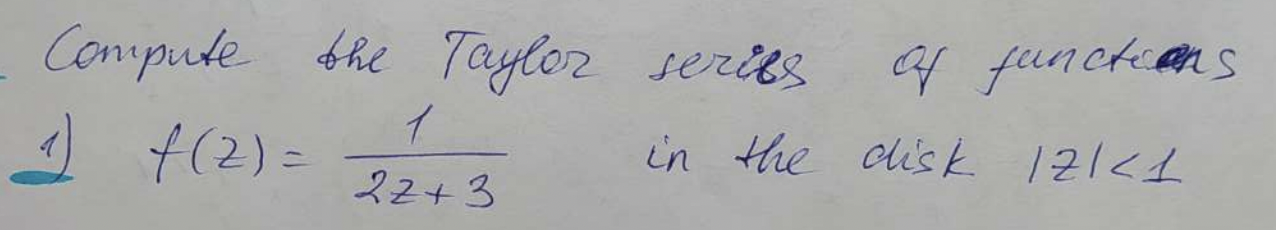 Compute the Taylor series of functions
1) f(z) = 1/(2z+3) in the disk |z|<1